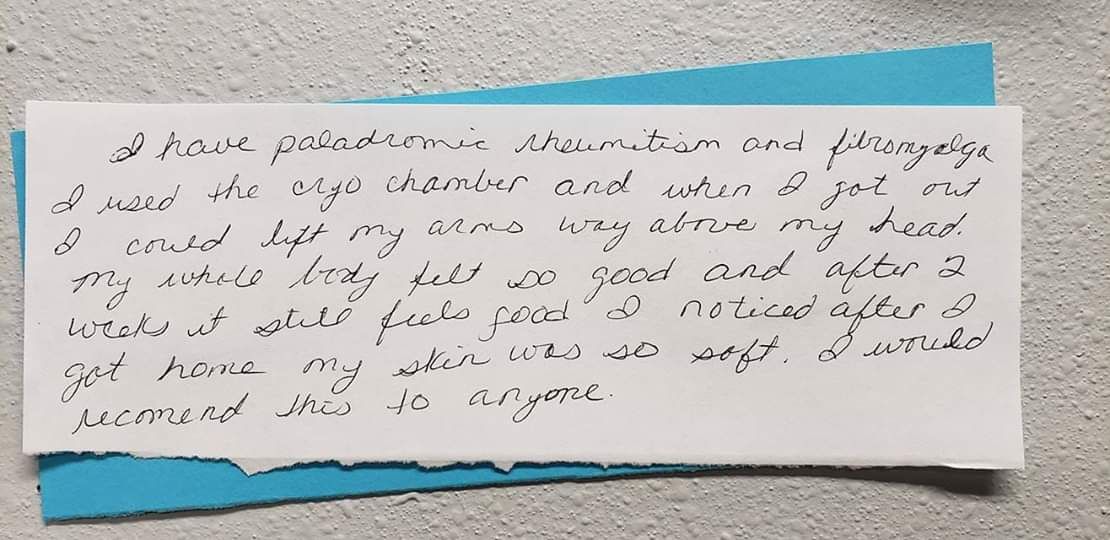 I have paladromic rheumitism and fibromyalga
I used the cryo chamber and when I got out
I could lift my arms way above my head.
my whole body felt so good and after 2
weeks it still feels good I noticed after I
got home my skin was so soft. I would
recomend this to anyone.